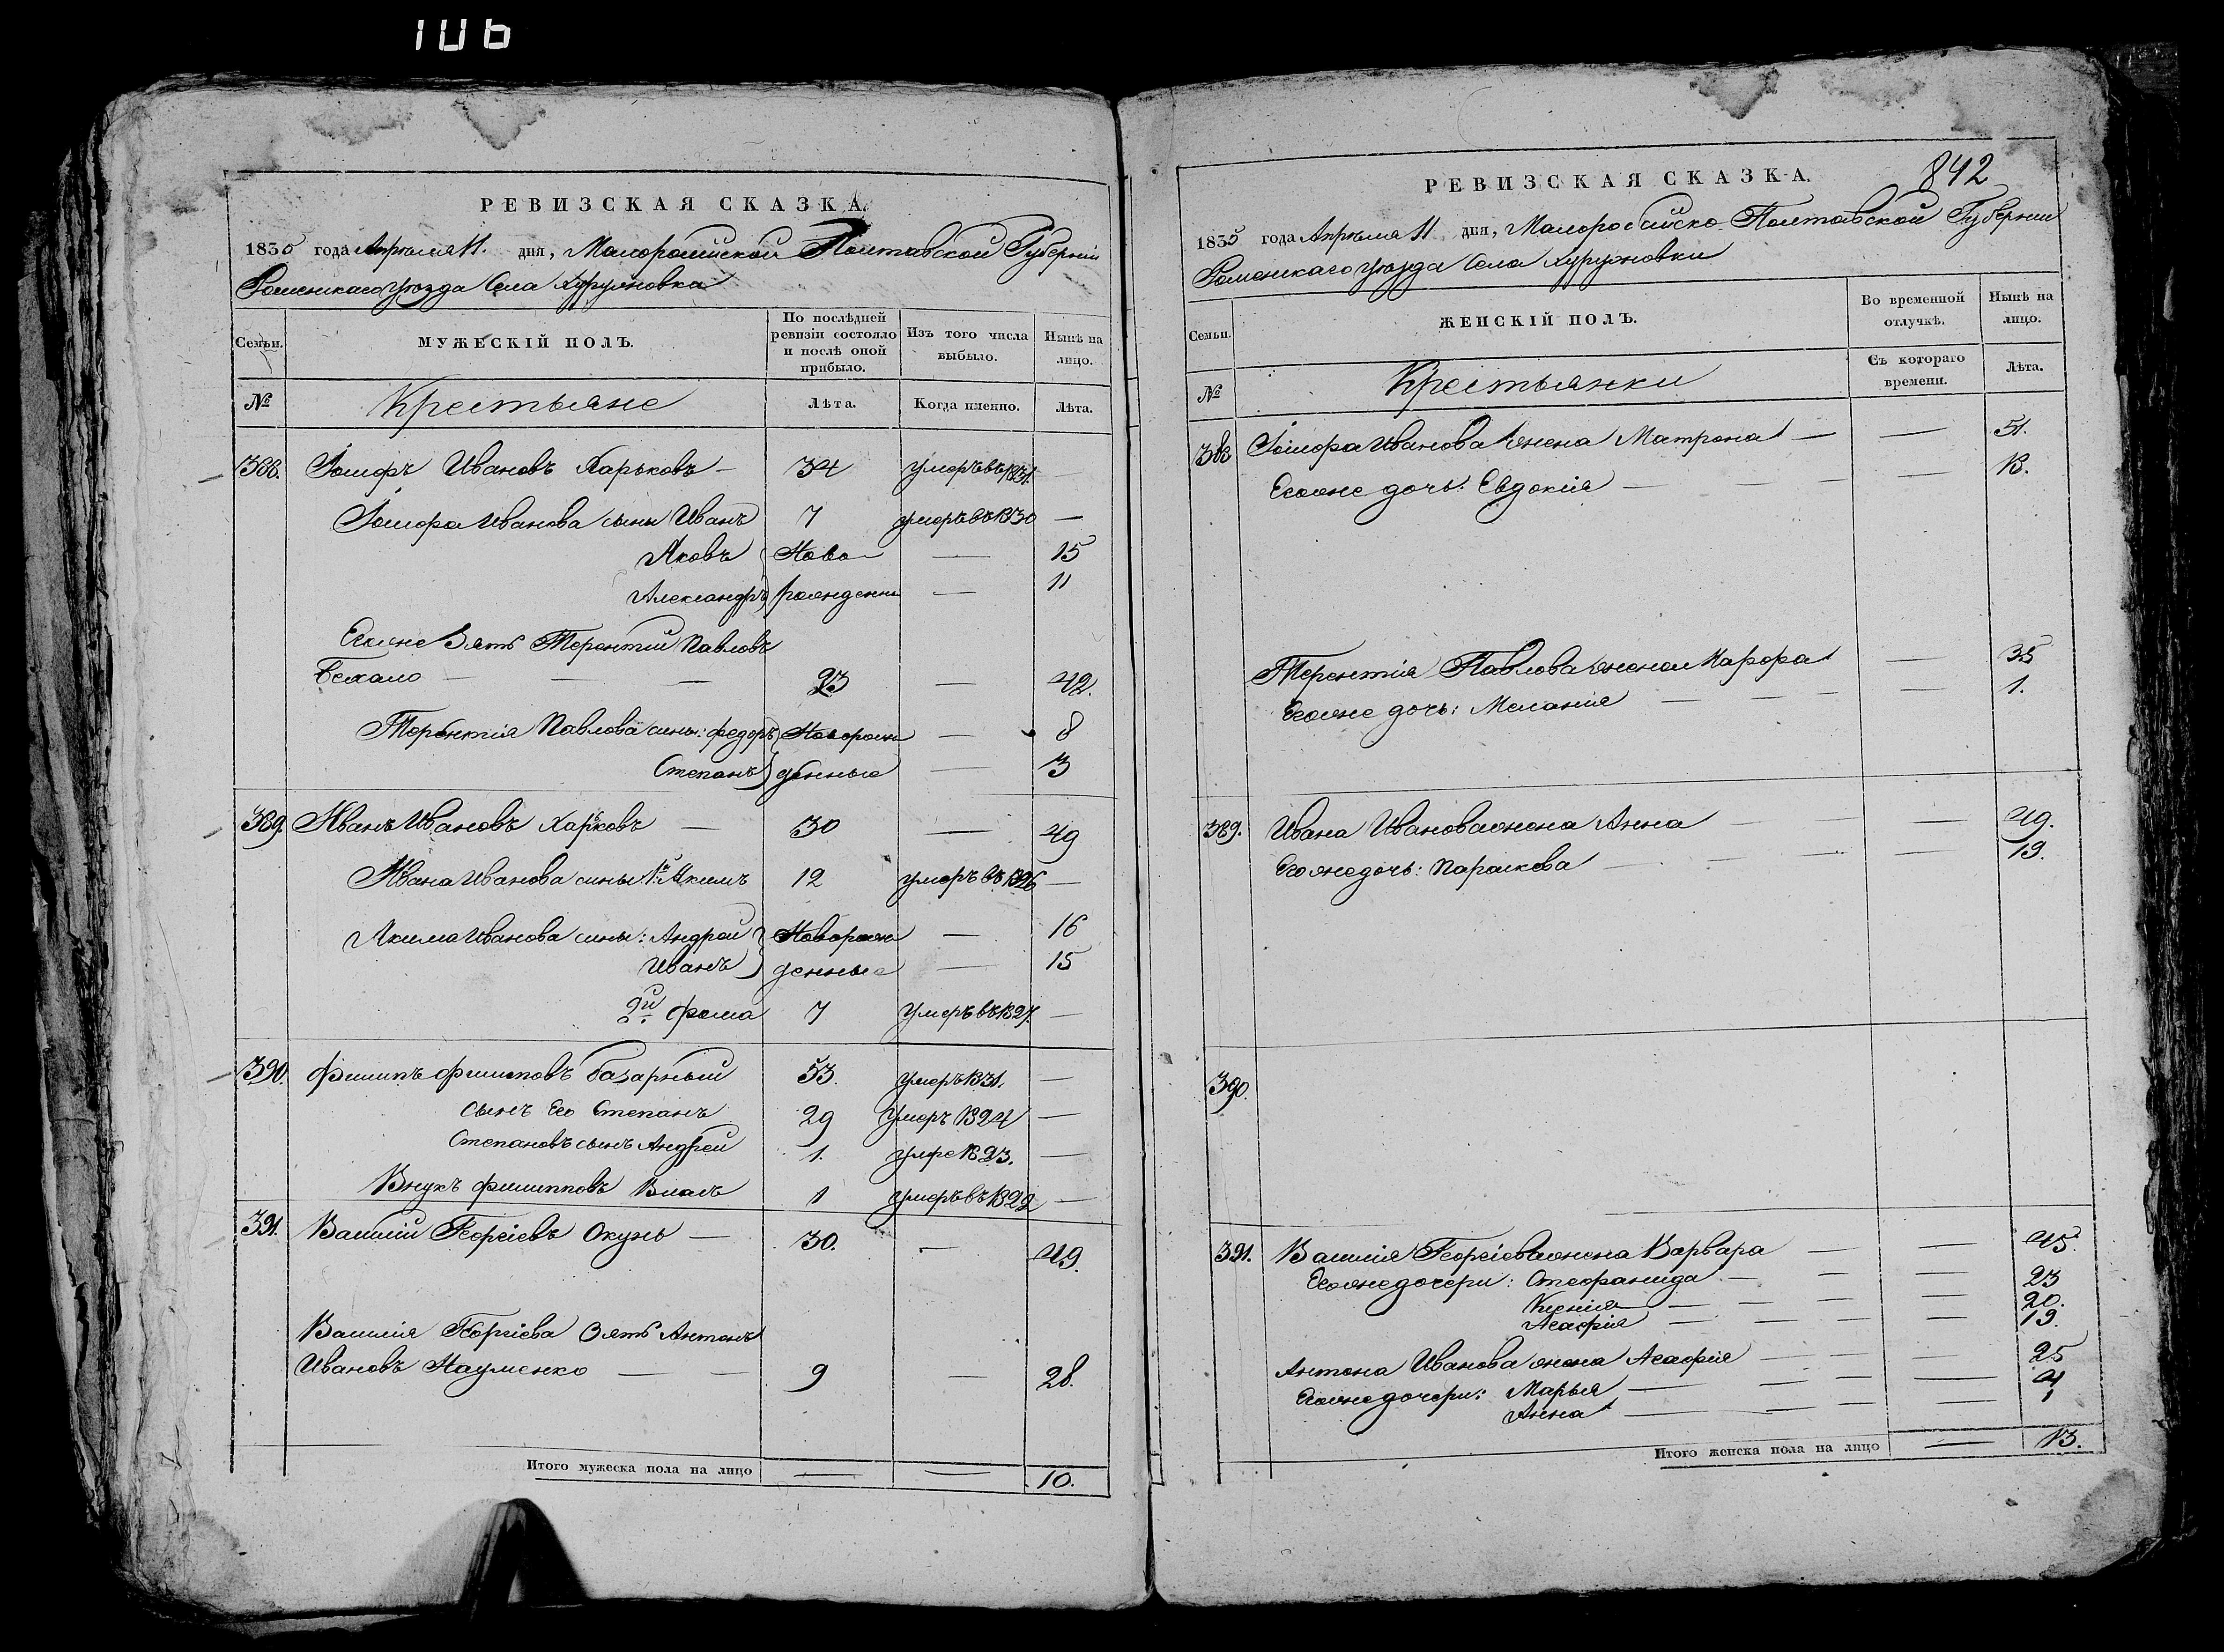 106
РЕВИЗСКАЯ СКАЗКА.
1835 года Апреля 11. дня, Малоросийской Полтавской Губерніи
Роменскаго уезда Села
Семьи. МУЖЕСКІЙ ПОЛЪ. По послѣдней ревизіи состояло и послѣ оной прибыло. Изъ того числа выбыло. Нынѣ на лицо.
№ Крестьяне Лѣта. Когда именно. Лѣта.
388. Ивановъ Харьковъ — 34 умеръ въ 1831. —
Іосифа Иванова сыны Иванъ 7 умеръ въ 1830 —
Яковъ Ново — 15
Александръ рожденны — 11
Егоже Зять Терентий Павловъ
— — — 23 — 42.
Терентія Павлова сины: Федоръ Новорож — 8
Степанъ денные — 3
389. Иванъ Ивановъ Харьковъ — 30 — 49
Ивана Иванова сины 1й Акимъ 12 умеръ въ 1826 —
Акима Иванова сины: Андрей Новорож — 16
Иванъ денные — 15
2й Фома 7 Умеръ въ 1827. —
390. Филипъ Филиповъ базарный 53. умеръ 1831. —
сынъ Его Степанъ 29 умеръ 1824 —
Степановъ сынъ Андрей 1. умре 1823. —
Внукъ Филипповъ Власъ 1 умеръ въ 1822 —
391. Василій Георгіевъ Окунь — 30. — 49.
Василія Георгіева Зять Антонъ
Ивановъ Науменко — — 9 — 28.
Итого мужеска пола на лицо — — 10.
842
РЕВИЗСКАЯ СКАЗКА.
1835 года Апреля 11 дня, Малоросийско Полтавской Губернии
Роменскаго уезда Села
Семьи. ЖЕНСКІЙ ПОЛЪ. Во временной отлучкѣ. Нынѣ на лицо.
№ Крестьянки Съ котораго времени. Лѣта.
388 Іосифа Иванова жена Матрона — — 51.
Егоже дочь: Евдокія — — — — 13.
Терентія Павлова жена — 35
Егоже дочь: Меланія — — — — 1.
389. Ивана Иванова жена Анна — — — 49.
Егоже дочь: Параскева — — — — 19.
390.
391. Василія Георгіева жена Варвара — — 45.
Егоже дочери: Стефанида — — — 23
Ксенія — — — — 20.
Агафія — — — — 19.
Антона Иванова жена Агафия — — — 25
Егоже дочери: Марья — — — — 4
Анна — — — — 1
Итого женска пола на лицо — 13.